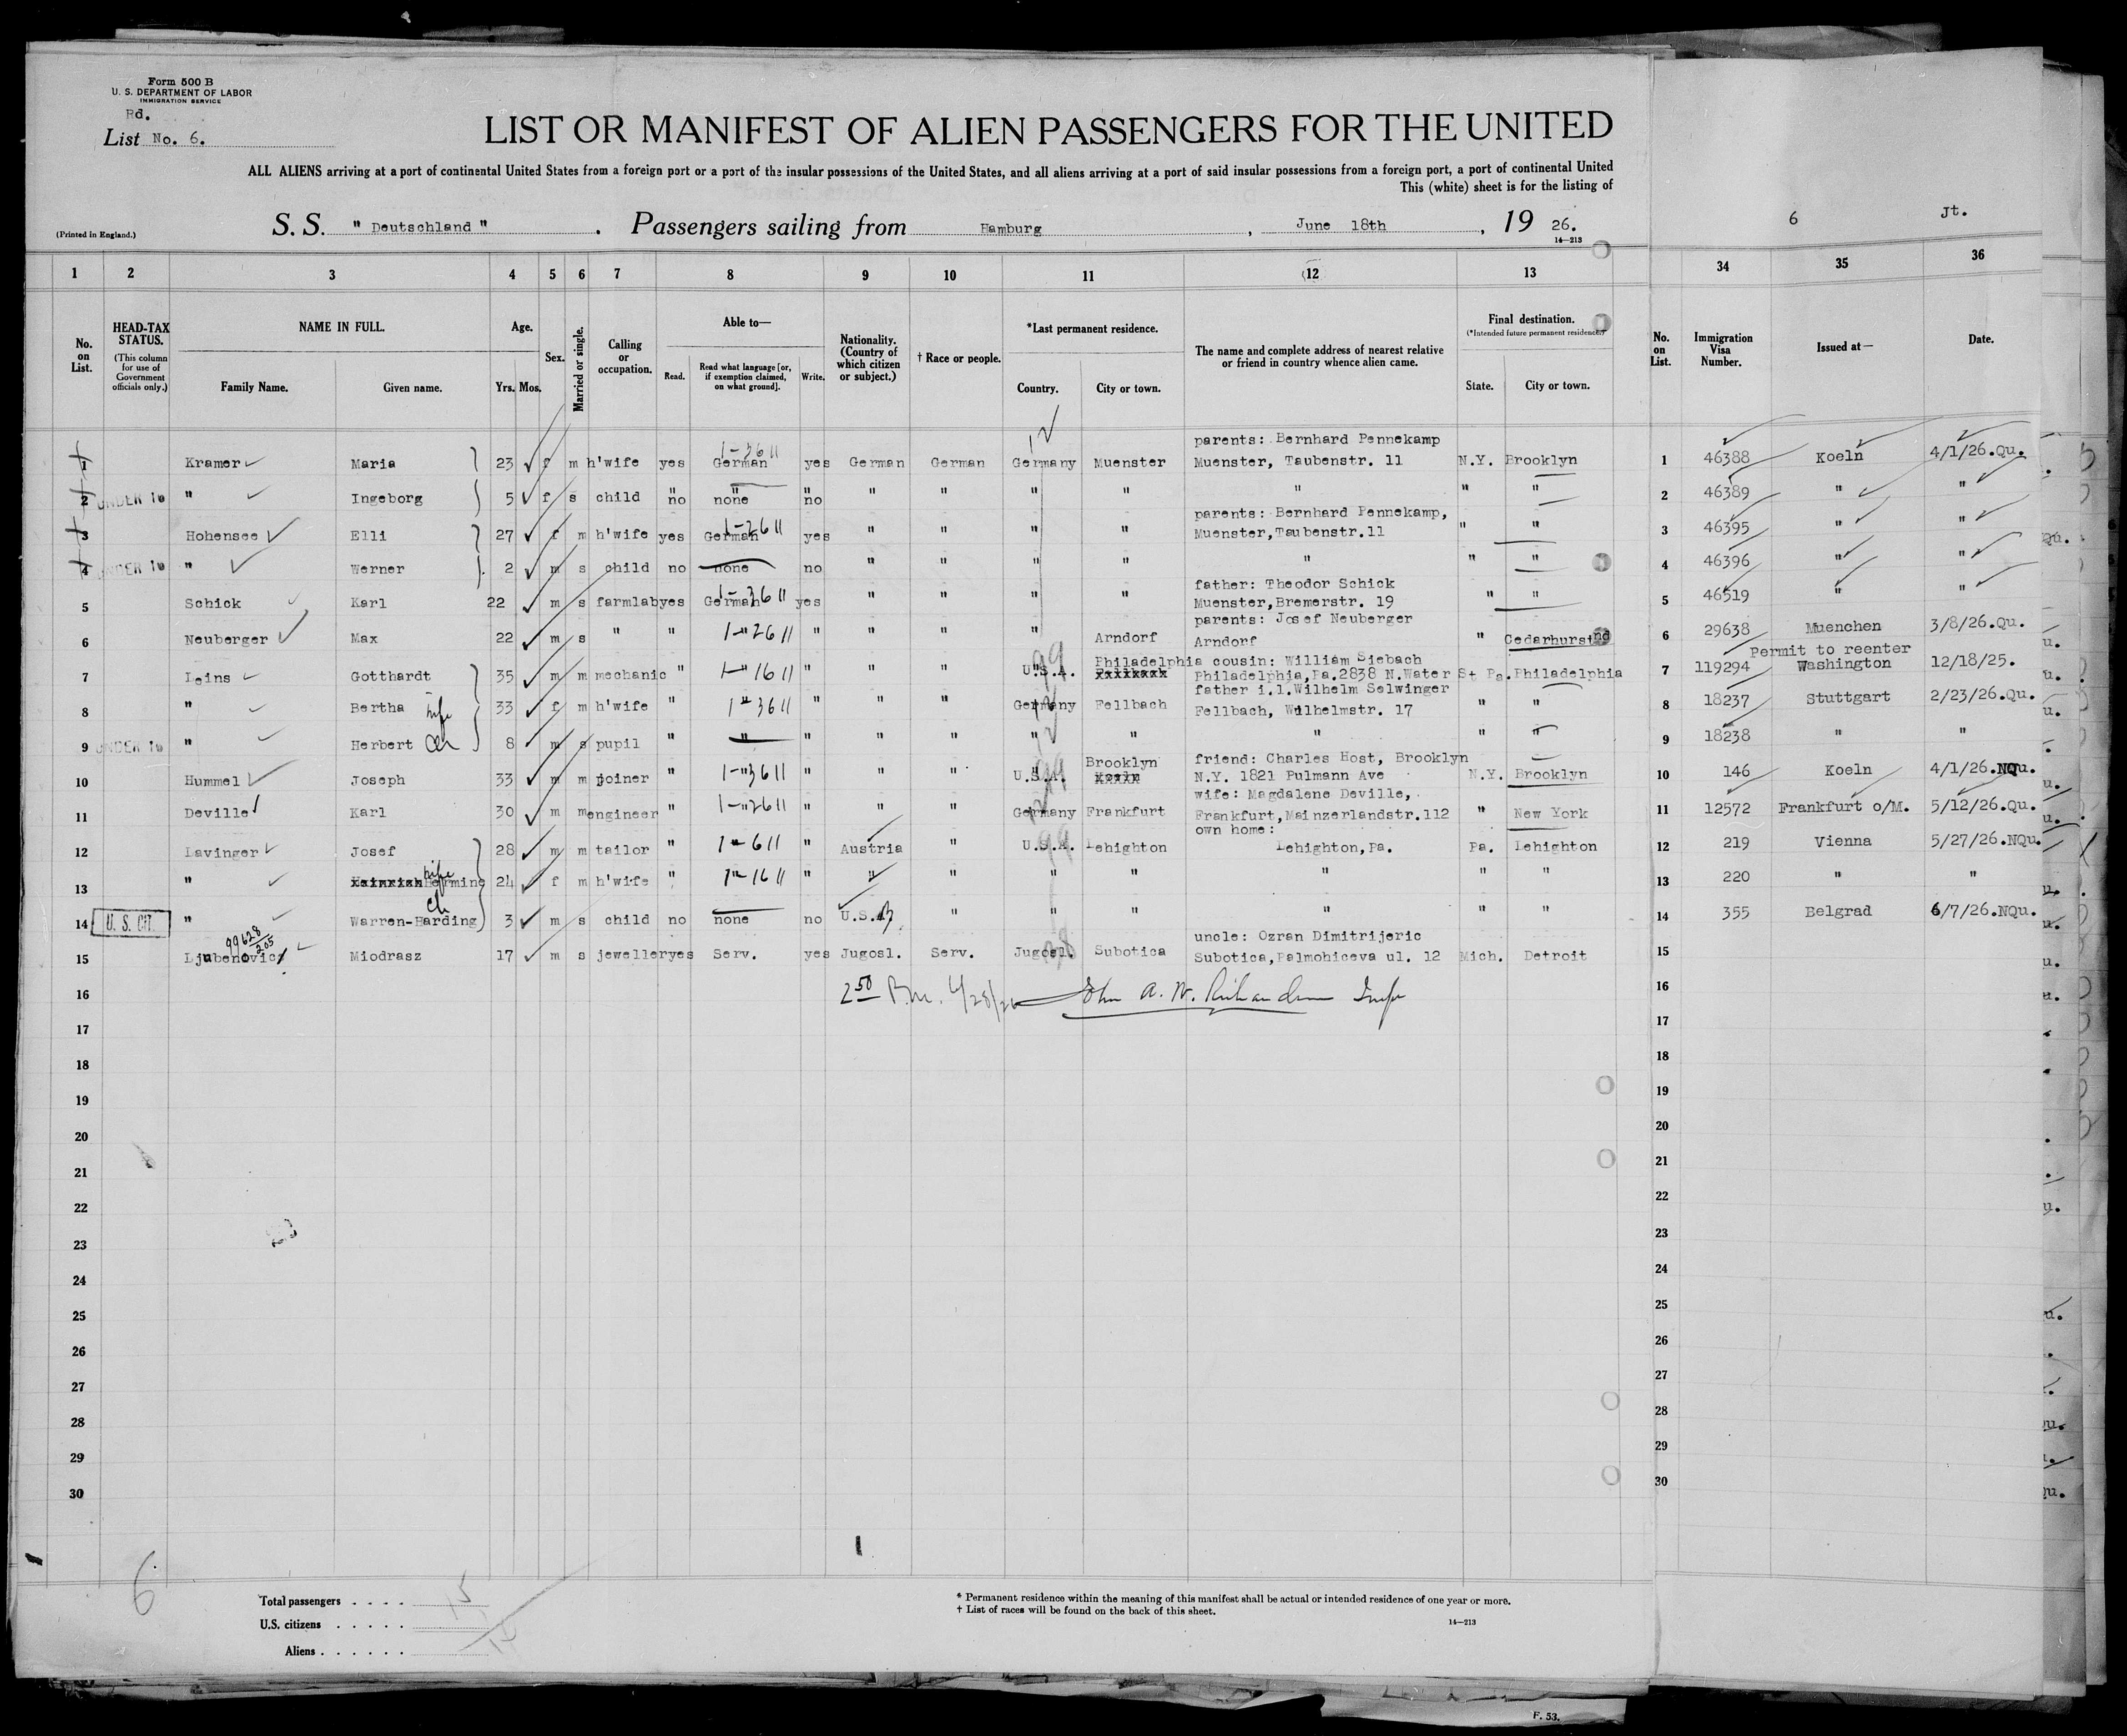 Form 500 B
U. S. DEPARTMENT OF LABOR
IMMIGRATION SERVICE
Rd.
List No. 6.
LIST OR MANIFEST OF ALIEN PASSENGERS FOR THE UNITED
ALL ALIENS arriving at a port of continental United States from a foreign port or a port of the insular possessions of the United States, and all aliens arriving at a port of said insular possessions from a foreign port, a port of continental United
This (white) sheet is for the listing of
(Printed in England.)
S. S. " Deutschland " . Passengers sailing from Hamburg , June 18th , 19 26.
14—213
6 Jt.
1 2 3 4 5 6 7 8 9 10 11 12 13 34 35 36
No. on List.
HEAD-TAX STATUS. (This column for use of Government officials only.)
NAME IN FULL. Family Name. Given name.
Age. Yrs. Mos.
Sex.
Married or single.
Calling or occupation.
Able to— Read. Read what language [or, if exemption claimed, on what ground]. Write.
Nationality. (Country of which citizen or subject.)
† Race or people.
*Last permanent residence. Country. City or town.
The name and complete address of nearest relative or friend in country whence alien came.
Final destination. (*Intended future permanent residence.) State. City or town.
No. on List.
Immigration Visa Number.
Issued at—
Date.
parents: Bernhard Pennekamp
1 Kramer Maria 23 f m h'wife yes German yes German German Germany Muenster Muenster, Taubenstr. 11 N.Y. Brooklyn 1 46388 Koeln 4/1/26.Qu.
2 UNDER 16 " Ingeborg 5 f s child " no " none " no " " " " " " " 2 46389 " "
parents: Bernhard Pennekamp,
3 Hohensee Elli 27 f m h'wife yes German yes " " " " Muenster,Taubenstr.11 " " 3 46395 " "
4 UNDER 16 " Werner 2 m s child no none no " " " " " " " 4 46396 " "
father: Theodor Schick
5 Schick Karl 22 m s farmlab yes German yes " " " " Muenster,Bremerstr. 19 " " 5 46519 " "
parents: Josef Neuberger
6 Neuberger Max 22 m s " " " " " " " Arndorf Arndorf " Cedarhursind 6 29638 Muenchen 3/8/26.Qu.
Philadelphia cousin: William Siebach Permit to reenter
7 Leins Gotthardt 35 m m mechanic " " " " " U.S.A. Philadelphia,Pa.2838 N.Water St Pa. Philadelphia 7 119294 Washington 12/18/25.
father i.l.Wilhelm Selwinger
8 " Bertha wife 33 f m h'wife " " " " " Germany Fellbach Fellbach, Wilhelmstr. 17 " " 8 18237 Stuttgart 2/23/26.Qu.
9 UNDER 16 " Herbert 8 m s pupil " " " " " " " " " " 9 18238 " "
Brooklyn friend: Charles Host, Brooklyn
10 Hummel Joseph 33 m m joiner " " " " " U.S.A. N.Y. 1821 Pulmann Ave N.Y. Brooklyn 10 146 Koeln 4/1/26.NQu.
wife: Magdalene Deville,
11 Deville Karl 30 m m engineer " " " " " Germany Frankfurt Frankfurt,Mainzerlandstr.112 " New York 11 12572 Frankfurt o/M. 5/12/26.Qu.
own home:
12 Lavinger Josef 28 m m tailor " " " Austria " U.S.A. Lehighton Lehighton,Pa. Pa. Lehighton 12 219 Vienna 5/27/26.NQu.
13 " Hermine wife 24 f m h'wife " " " " " " " " " " 13 220 " "
14 U. S. CIT. " Warren-Harding ch 3 m s child no none no U.S.A. " " " " " " 14 355 Belgrad 6/7/26.NQu.
99628/205
uncle: Ozran Dimitrijeric
15 Ljubenovicz Miodrasz 17 m s jeweller yes Serv. yes Jugosl. Serv. Jugosl. Subotica Subotica,Palmohiceva ul. 12 Mich. Detroit 15
16 2 50 P.m. 6/28/26 John A. W. Richardson Insp 16
17 17
18 18
19 19
20 20
21 21
22 22
23 23
24 24
25 25
26 26
27 27
28 28
29 29
30 30
6
Total passengers . . . . 15
U.S. citizens . . . . .
Aliens . . . . . .
* Permanent residence within the meaning of this manifest shall be actual or intended residence of one year or more.
† List of races will be found on the back of this sheet.
14—213
F. 53.